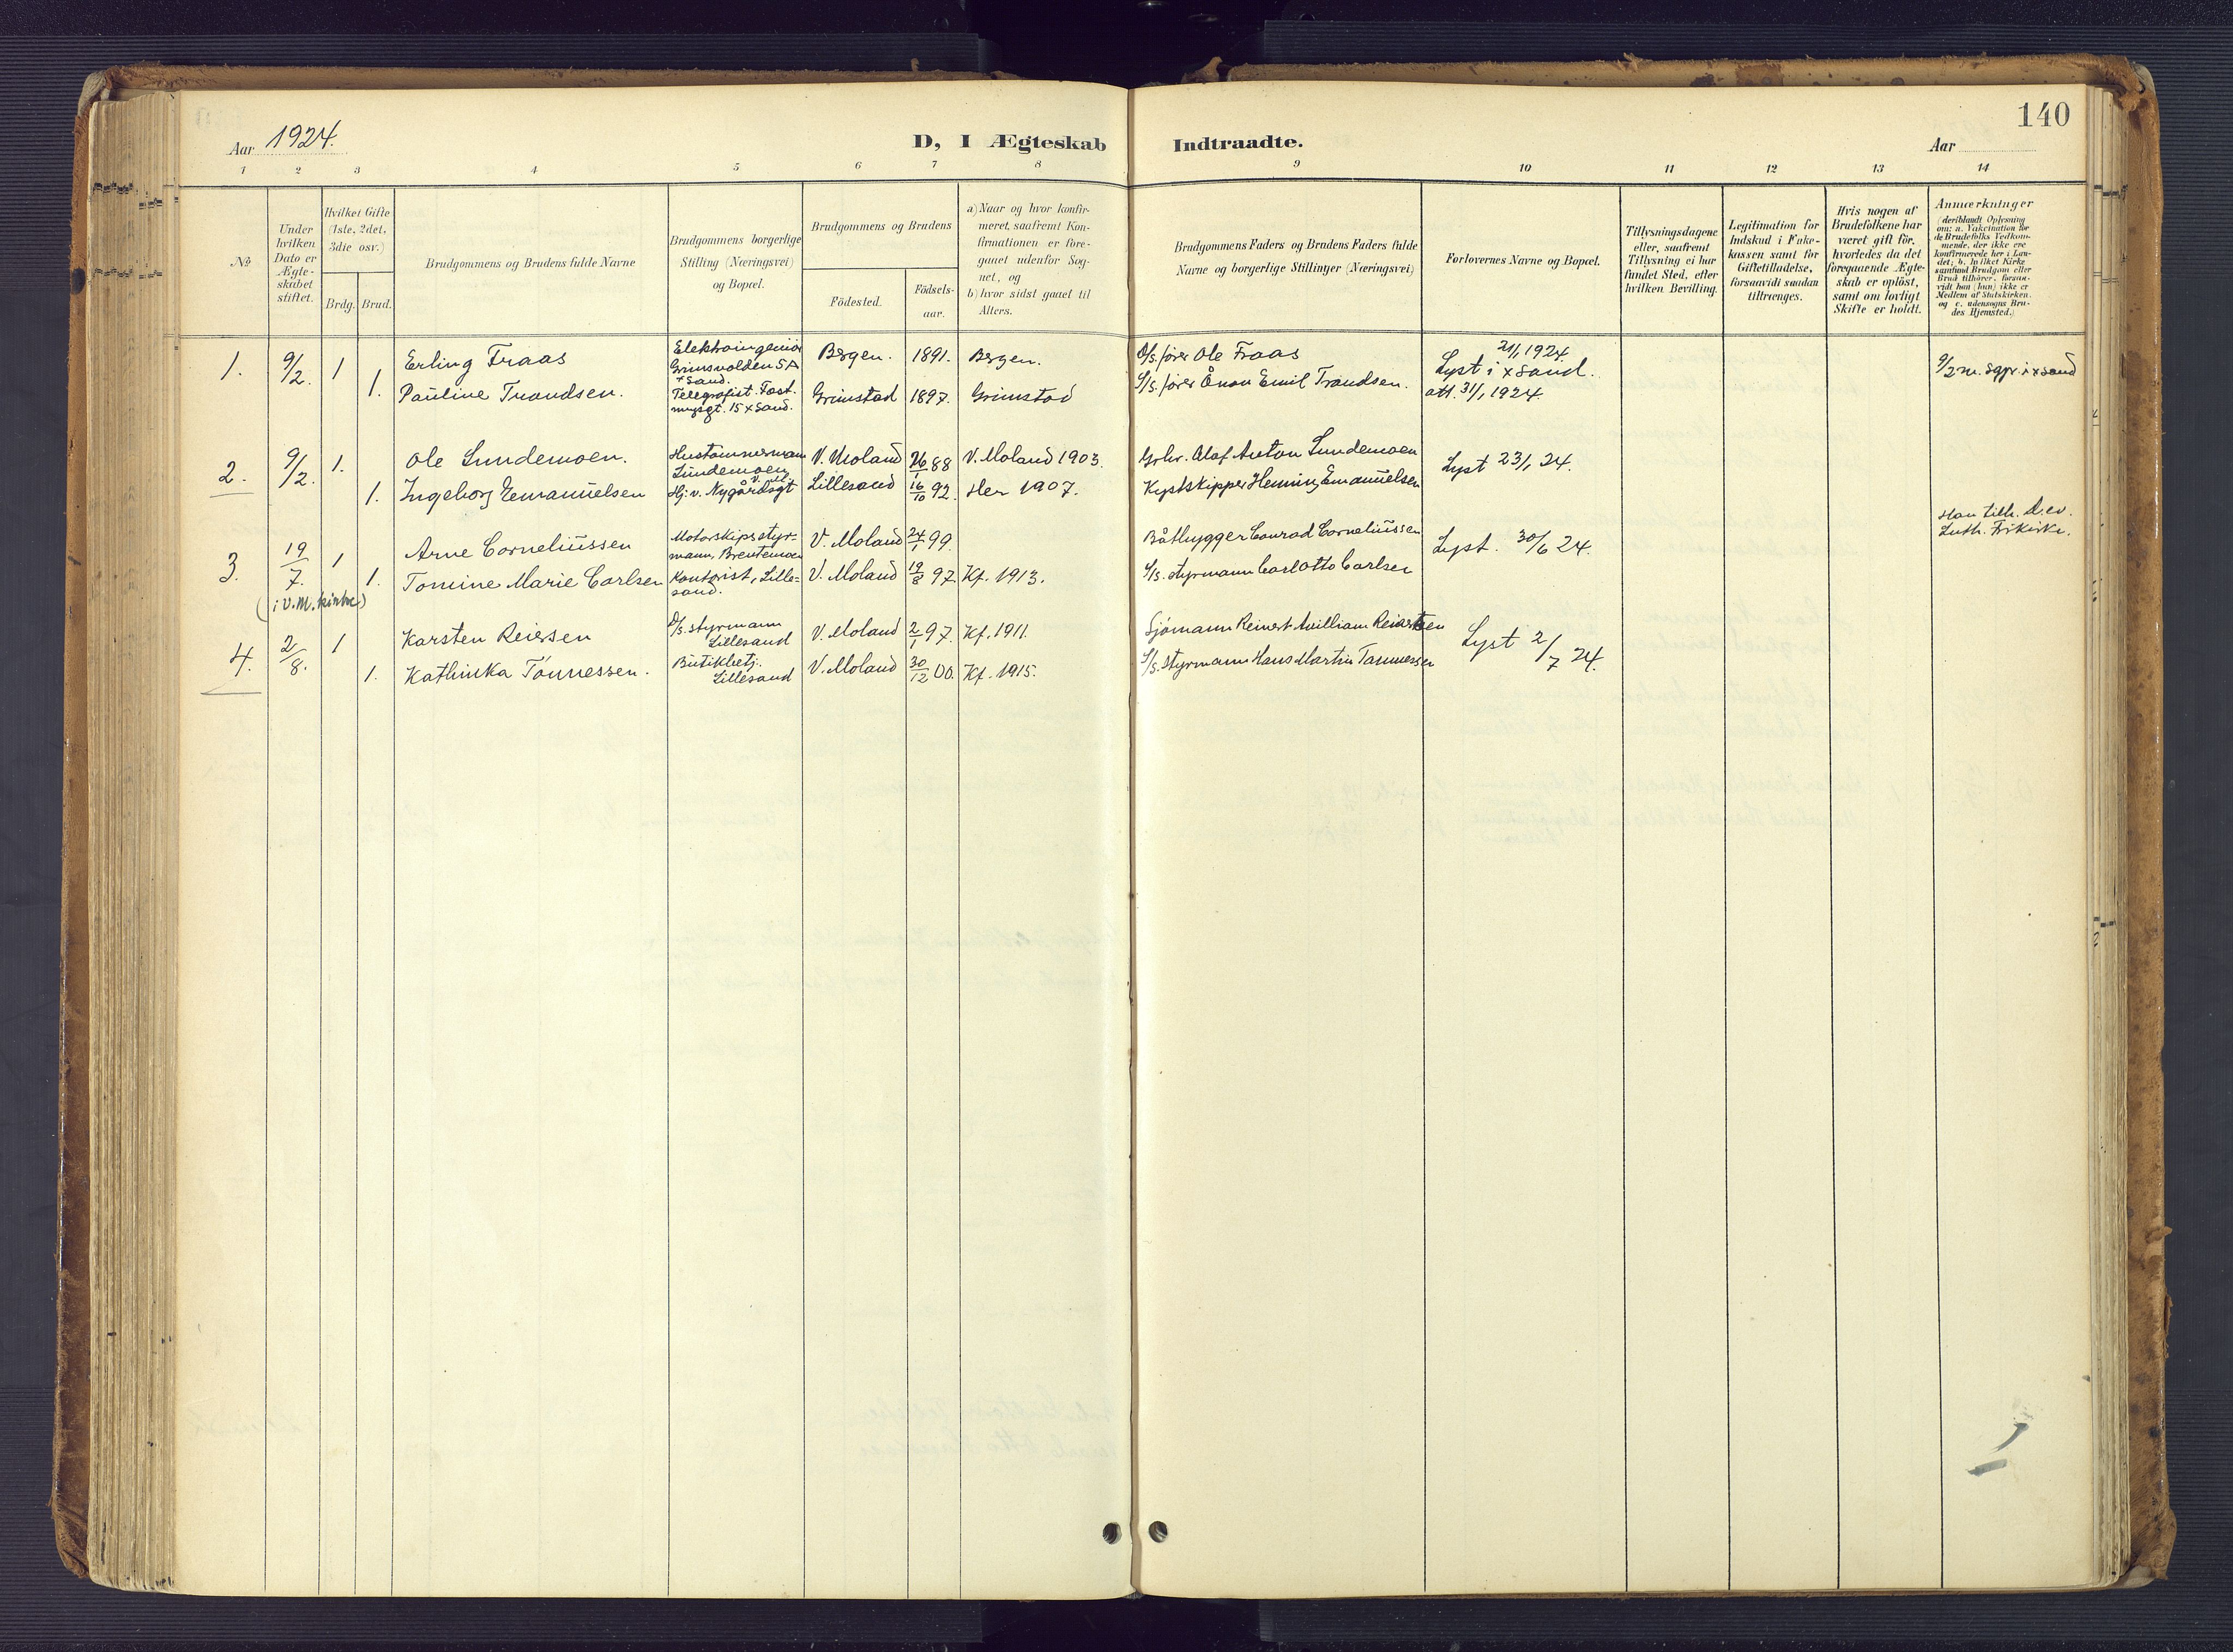 140
Aar 1924.
D, I Ægteskab Indtraadte.
Aar
1 2 3 4 5 6 7 8 9 10 11 12 13 14
№
Under
hvilken
Dato er
Ægte-
skabet
stiftet.
Hvilket Gifte
(1ste, 2det,
3die osv.)
Brdg. Brud.
Brudgommens og Brudens fulde Navne
Brudgommens borgerlige
Stilling (Næringsvei)
og Bopæl.
Brudgommens og Brudens
Födested.
Födsels-
aar.
a) Naar og hvor konfir-
meret, saafremt Kon-
firmationen er fore-
gaaet udenfor Sog-
net, og
b) hvor sidst gaaet til
Alters.
Brudgommens Faders og Brudens Faders fulde
Navne og borgerlige Stillinger (Næringsvei)
Forlovernes Navne og Bopæl.
Tillysningsdagene
eller, saafremt
Tillysning ei har
fundet Sted, efter
hvilken Bevilling.
Legitimation for
Indskud i Enke-
kassen samt for
Giftetilladelse,
forsaavidt saadan
tiltrænges.
Hvis nogen af
Brudefolkene har
været gift för,
hvorledes da det
foregaaende Ægte-
skab er oplöst,
samt om lovligt
Skifte er holdt.
Anmærkninger
(deriblandt Oplysning
om: a. Vakcination for
de Brudefolks Vedkom-
mende, der ikke ere
konfirmerede her i Lan-
det; b. hvilket Kirke-
samfund Brudgom eller
Brud tilhörer, forsaa-
vidt han (hun) ikke er
Medlem af Statskirken,
og c. udensogns Bru-
des Hjemsted.)
1. 9/2. 1 Erling Fraas
Elektroingeniør
Grimsvolden 5A
+ Sand.
Bergen. 1891. Bergen.
D/s. fører Ole Fraas
21/1 1924.
Lyst i x sand.
att. 31/1 1924.
9/2 m. sgpr. i x sand
1. Pauline Trondsen.
Telegrafist. Fest.
mngsgt. 15 x Sand.
Grimstad 1897. Grimstad
S/s. fører Ånon Emil Trondsen.
2. 9/2. 1. Ole Lundemoen.
Hustømmermann
Lundemoen
V. Moland 26/1 88 V. Moland 1903.
Grbr. Olaf Anton Lundemoen
Lyst 23/1 24.
1. Ingeborg Emanuelsen
Hj. v. Nygårdsgt
Lillesand 16/10 92. Her 1907.
Kystskipper Henning Emanuelsen
3. 19/7. 1 Arne Corneliussen
(i V.M. kirke)
Motorskipsstyr-
mann, Brentemoen
V. Moland 24/1 99.
Båtbygger Conrad Corneliussen
Lyst. 30/6 24.
Han tilh. d. ev.
Luth. Frikirke.
1. Tomine Marie Carlsen
Kontorist, Lille-
sand.
V. Moland 19/8 97. Kf. 1913.
S/s. styrmann Carl Otto Carlsen
4. 2/8. 1 Karsten Reiersen
D/s. styrmann
Lillesand
V. Moland 2/1 97. Kf. 1911.
Sjömann Reinert William Reiersen
Lyst 2/7 24.
1. Kathinka Tönnessen.
Butikbetj.
Lillesand
V. Moland 30/12 00. Kf. 1915.
S/s. styrmann Hans Martin Tönnessen